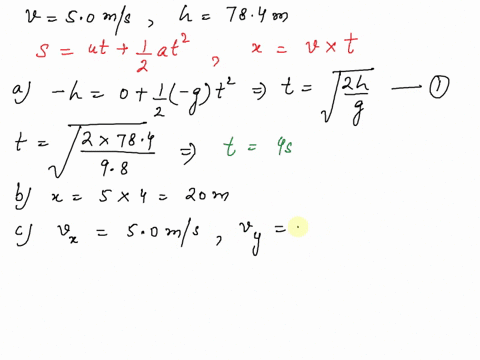 v = 5.0 m/s , h = 78.4 m
s = ut + 1/2 at² , x = v × t
a) -h = 0 + 1/2 (-g) t² ⇒ t = √(2h/g) — ①
t = √(2 × 78.4 / 9.8) ⇒ t = 4s
b) x = 5 × 4 = 20 m
c) vₓ = 5.0 m/s , v_y =